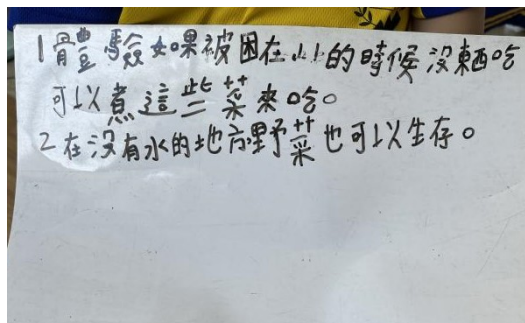 1體驗如果被困在山上的時候沒東西吃
可以煮這些菜來吃。
2在沒有水的地方野菜也可以生存。